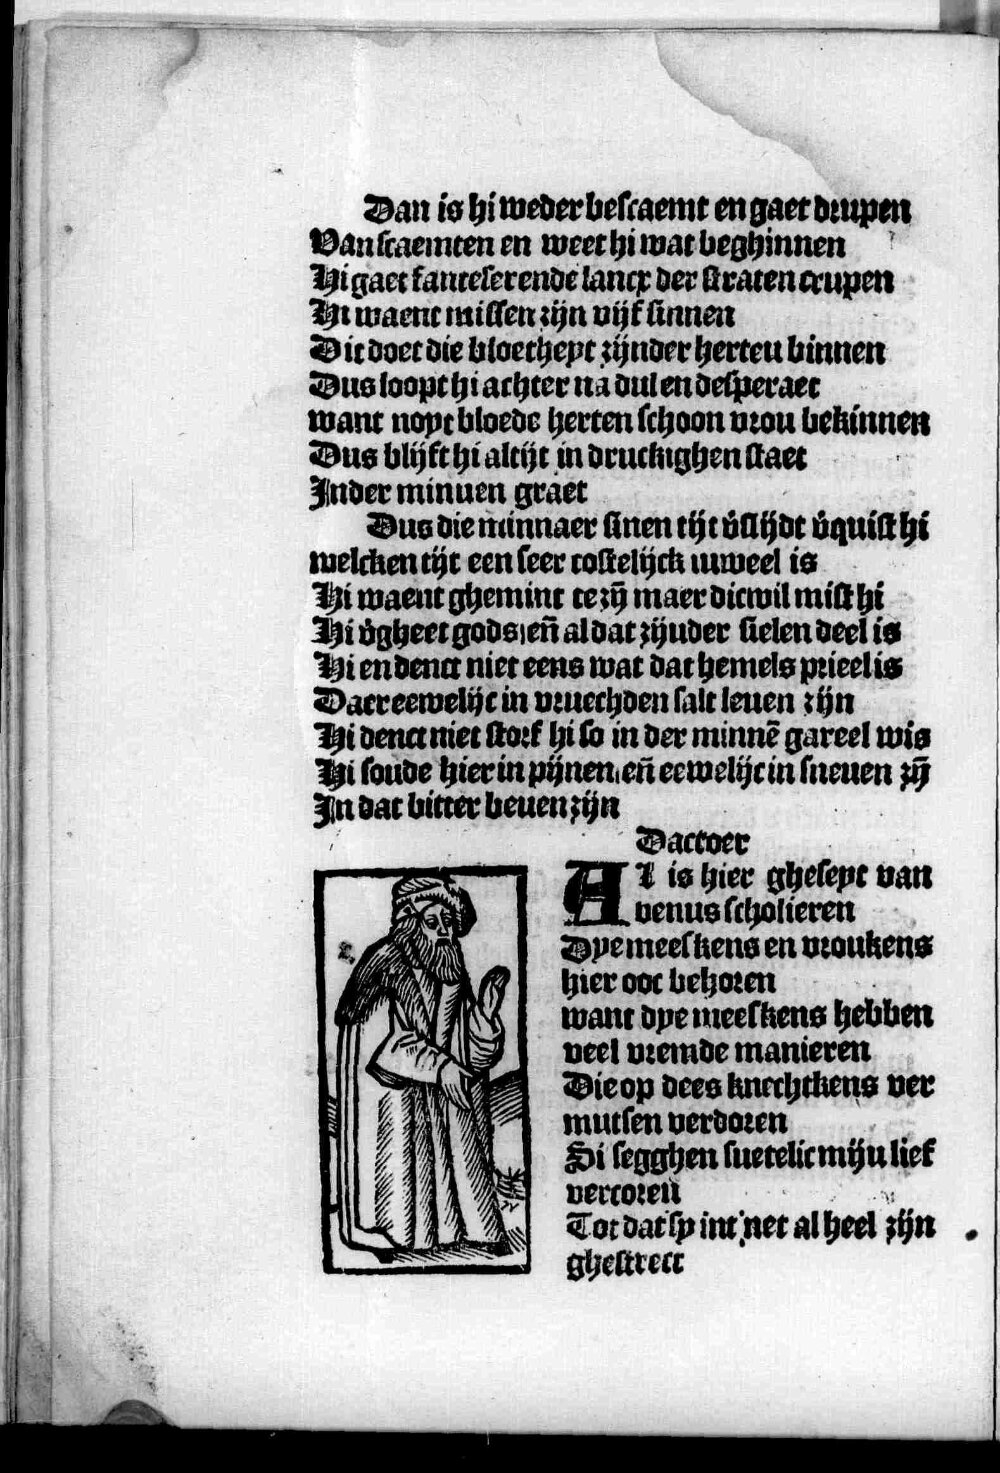 Dan is hi weder bescaemt en gaet drupen
Van scaemten en weet hi wat beghinnen
Hi gaet fanteserende lancx der straten crupen
Hi waent missen zijn vijf sinnen
Dit doet die bloetheyt zijnder herteu binnen
Dus loopt hi achter na dul en desperaet
want noyt bloede herten schoon vrou bekinnen
Dus blijft hi altijt in druckighen staet
Inder minuen graet
Dus die minnaer sinen tijt v̄slijdt v̄quist hi
welcken tijt een seer costelijck iuweel is
Hi waent ghemint te zȳ maer dicwil mist hi
Hi v̄gheet gods, en̄ al dat zijuder sielen deel is
Hi en denct niet eens wat dat hemels prieel is
Daer eewelijc in vruechden salt leuen zijn
Hi denct niet storf hi so in der minnē gareel wis
Hi soude hier in pijnen, en̄ eewelijc in sneuen zȳ
In dat bitter beuen zijn
Dactoer
Al is hier gheseyt van
venus scholieren
Dye meeskens en vroukens
hier ooc behoren
want dye meeskens hebben
veel vremde manieren
Die op dees knechtkens ver
mutsen verdoren
Si segghen suetelic mijn lief
vercoren
Tot dat sy int net al heel zijn
ghestrect